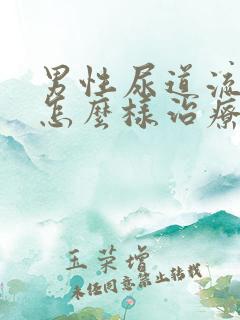 男性尿道流
怎麼樣治療
玉荣增
未经同意禁止转载